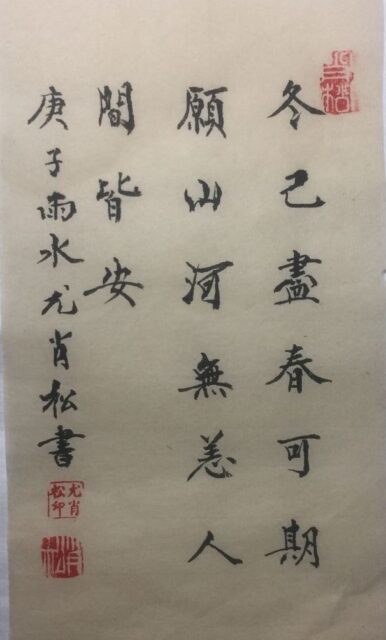 冬已盡春可期
願山河無恙人
間皆安
庚子雨水尤肖松書
尤肖
松印